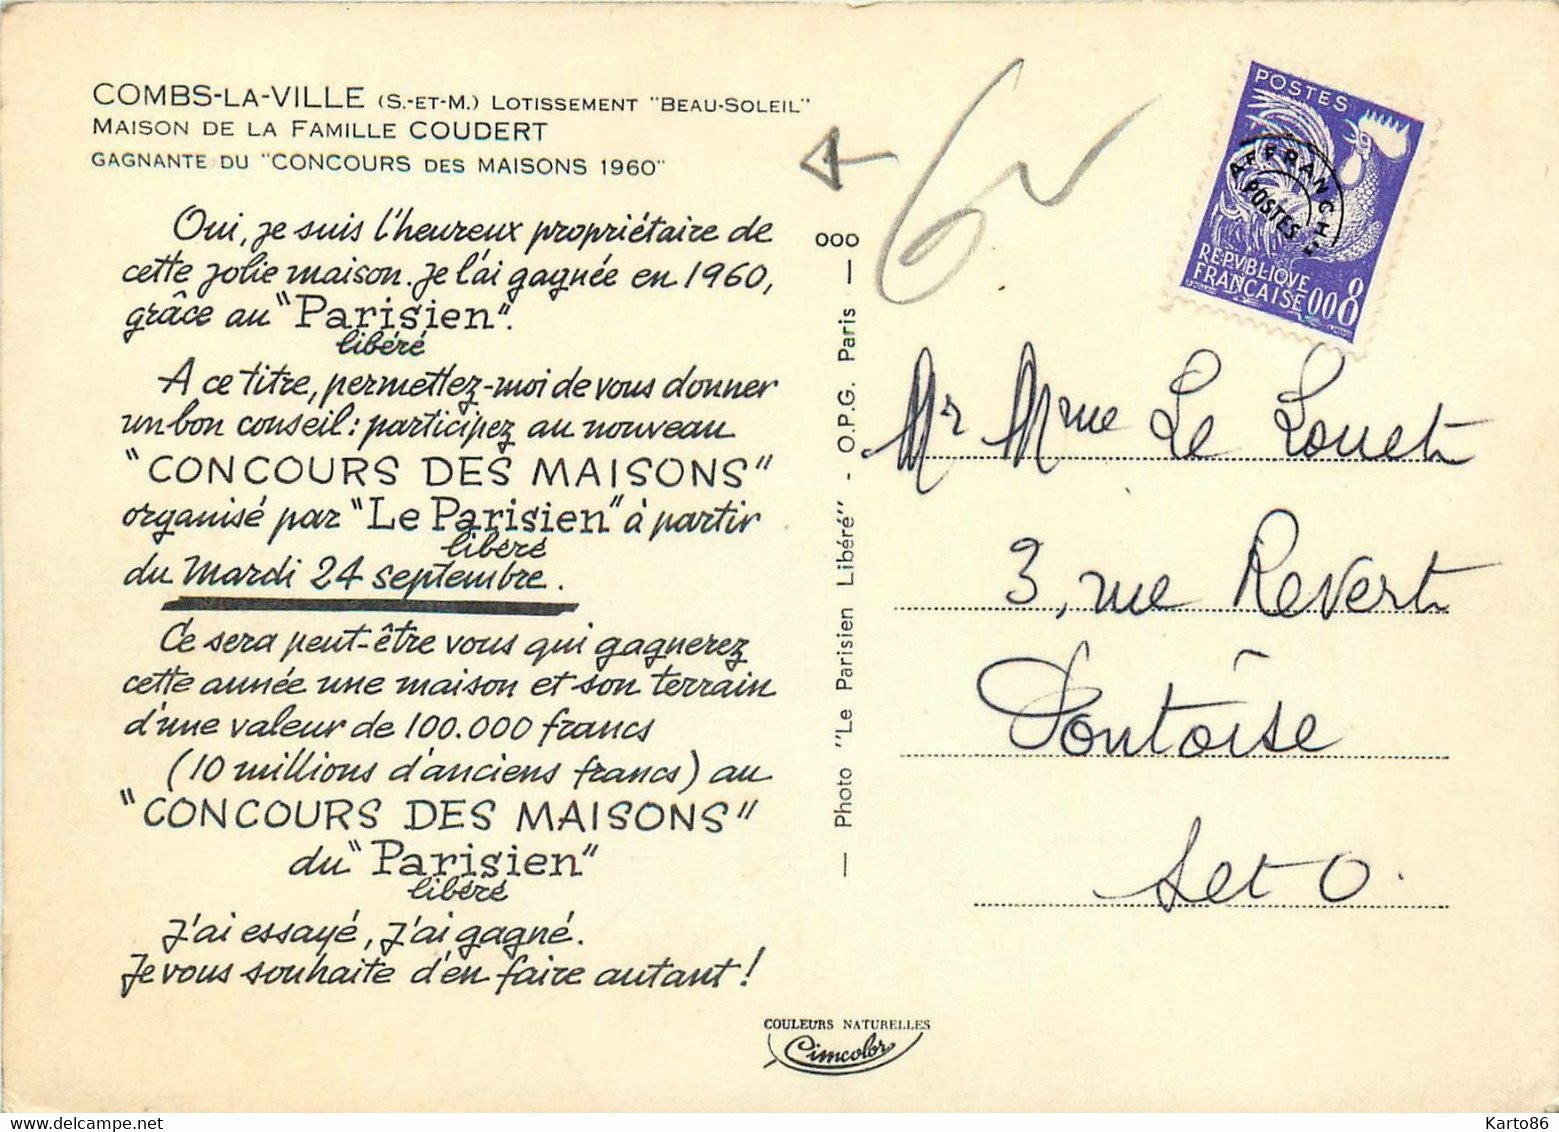 COMBS-LA-VILLE (S.-ET-M.) LOTISSEMENT "BEAU-SOLEIL"
MAISON DE LA FAMILLE COUDERT
GAGNANTE DU "CONCOURS DES MAISONS 1960"
Oui, je suis l'heureux propriétaire de
cette jolie maison. Je l'ai gagnée en 1960,
grâce au "Parisien".
libéré
A ce titre, permettez-moi de vous donner
un bon conseil : participez au nouveau
"CONCOURS DES MAISONS"
organisé par "Le Parisien" à partir
libéré
du Mardi 24 septembre.
Ce sera peut-être vous qui gagnerez
cette année une maison et son terrain
d'une valeur de 100.000 francs
(10 millions d'anciens francs) au
"CONCOURS DES MAISONS"
du "Parisien"
libéré
J'ai essayé, j'ai gagné.
Je vous souhaite d'en faire autant !
COULEURS NATURELLES
Cimcolor
— Photo "Le Parisien Libéré" - O.P.G. Paris —
000
POSTES
AFFRANCHts
POSTES
REPVBLIQVE
FRANÇAISE 008
Mr Mme Le Louet
3, rue Revert
Pontoise
S et O.
Karto86